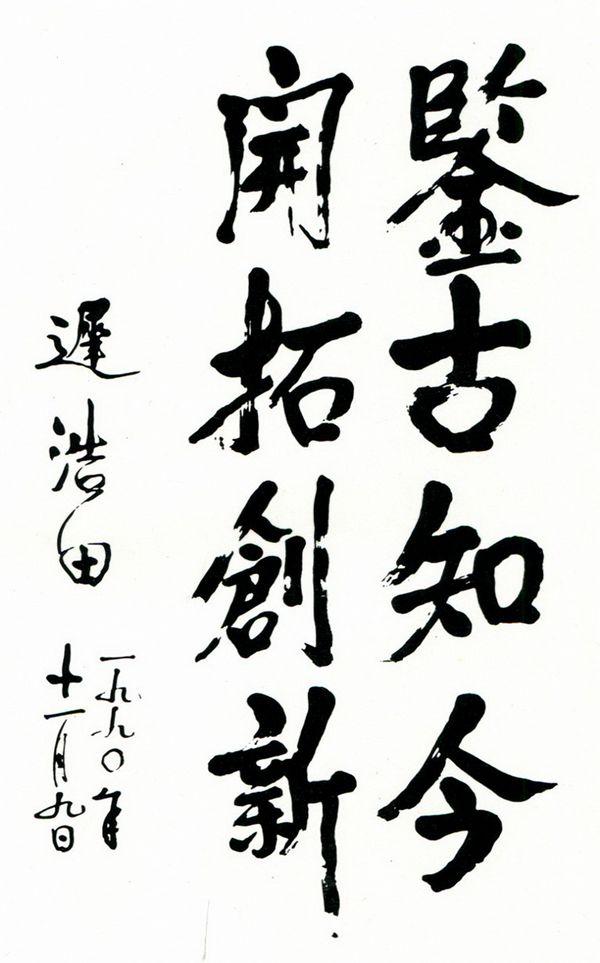 鑒古知今
開拓創新
遲浩田
一九九〇年
十一月九日